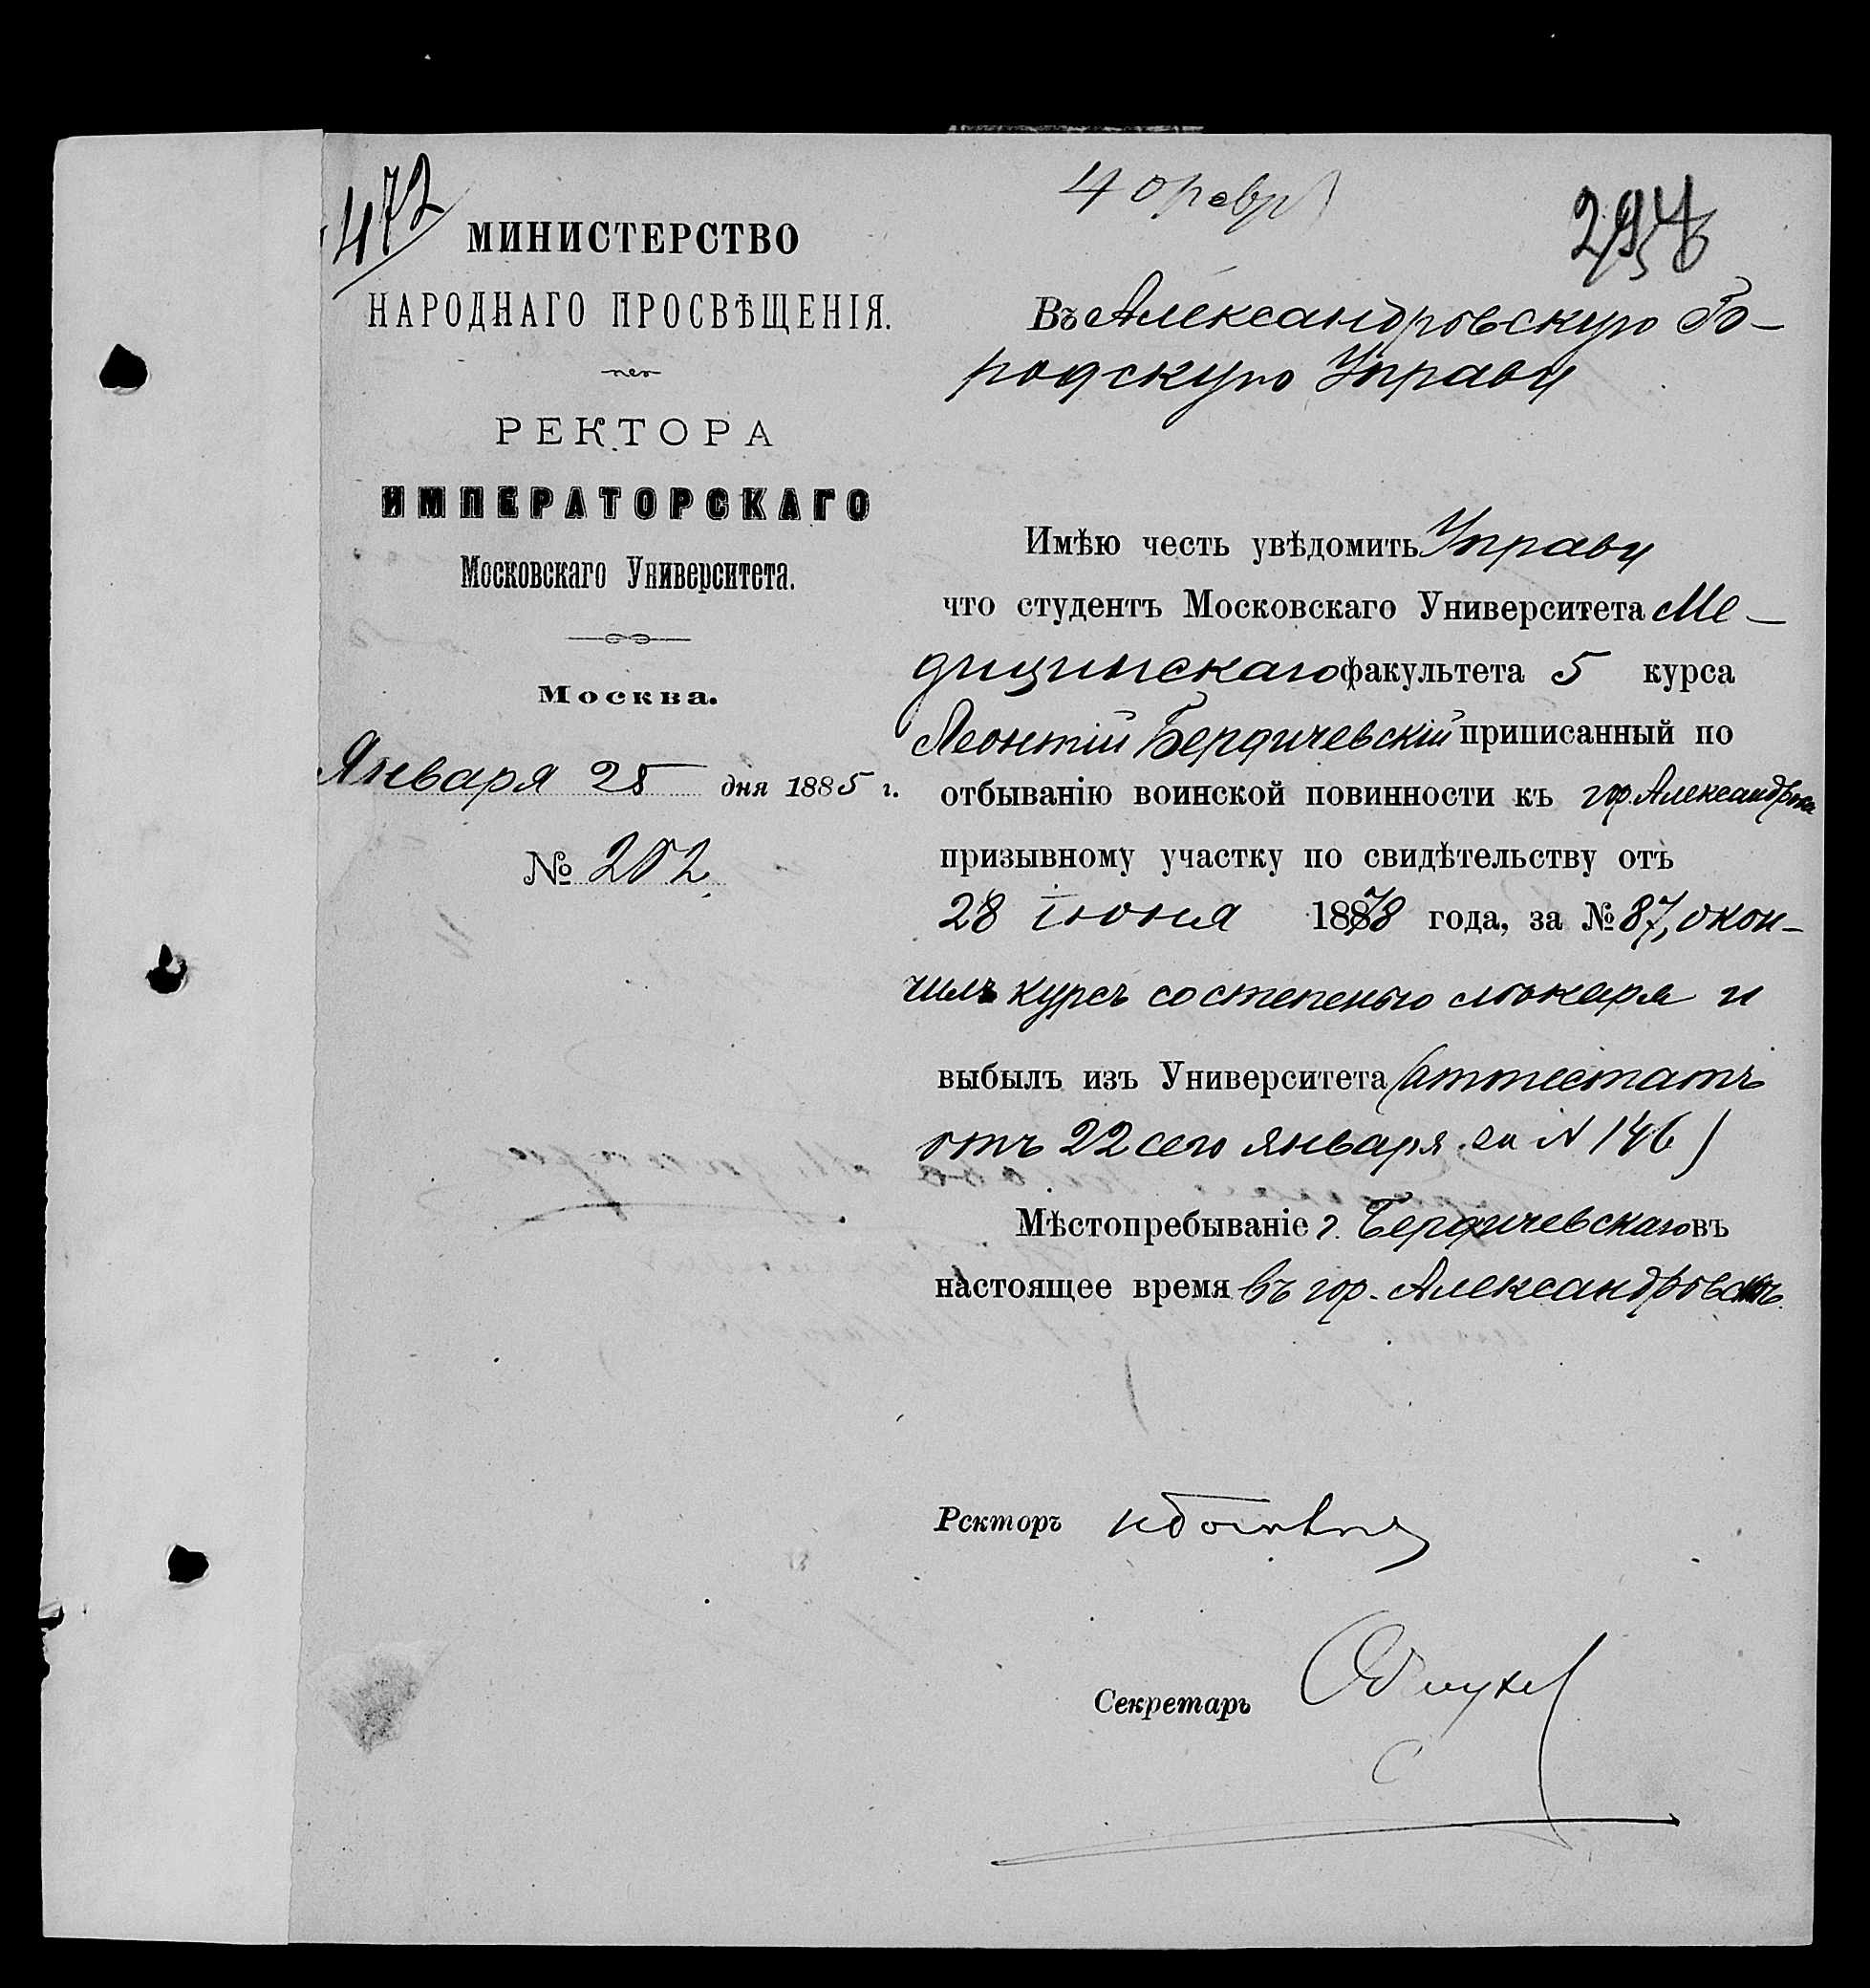 472
МИНИСТЕРСТВО
НАРОДНАГО ПРОСВѢЩЕНІЯ.
РЕКТОРА
ИМПЕРАТОРСКАГО
Московскаго Университета.
Москва.
Января 25 дня 1885 г.
№ 202.
4 февр
294
Въ Александровскую Го-
родскую Управу
Имѣю честь увѣдомить Управу
что студентъ Московскаго Университета Ме-
дицинскаго факультета 5 курса
Леонтій Бердичевскій приписанный по
отбыванію воинской повинности къ гор. Александровск
призывному участку по свидѣтельству отъ
28 іюня 1878 года, за № 87, окон-
чилъ курсъ со степенью лѣкаря и
выбылъ изъ Университета (аттестатъ
отъ 22 сего января за N 146)
Мѣстопребываніе г. Бердичевскаго въ
настоящее время въ гор. Александровскѣ.
Ректоръ
Секретарь